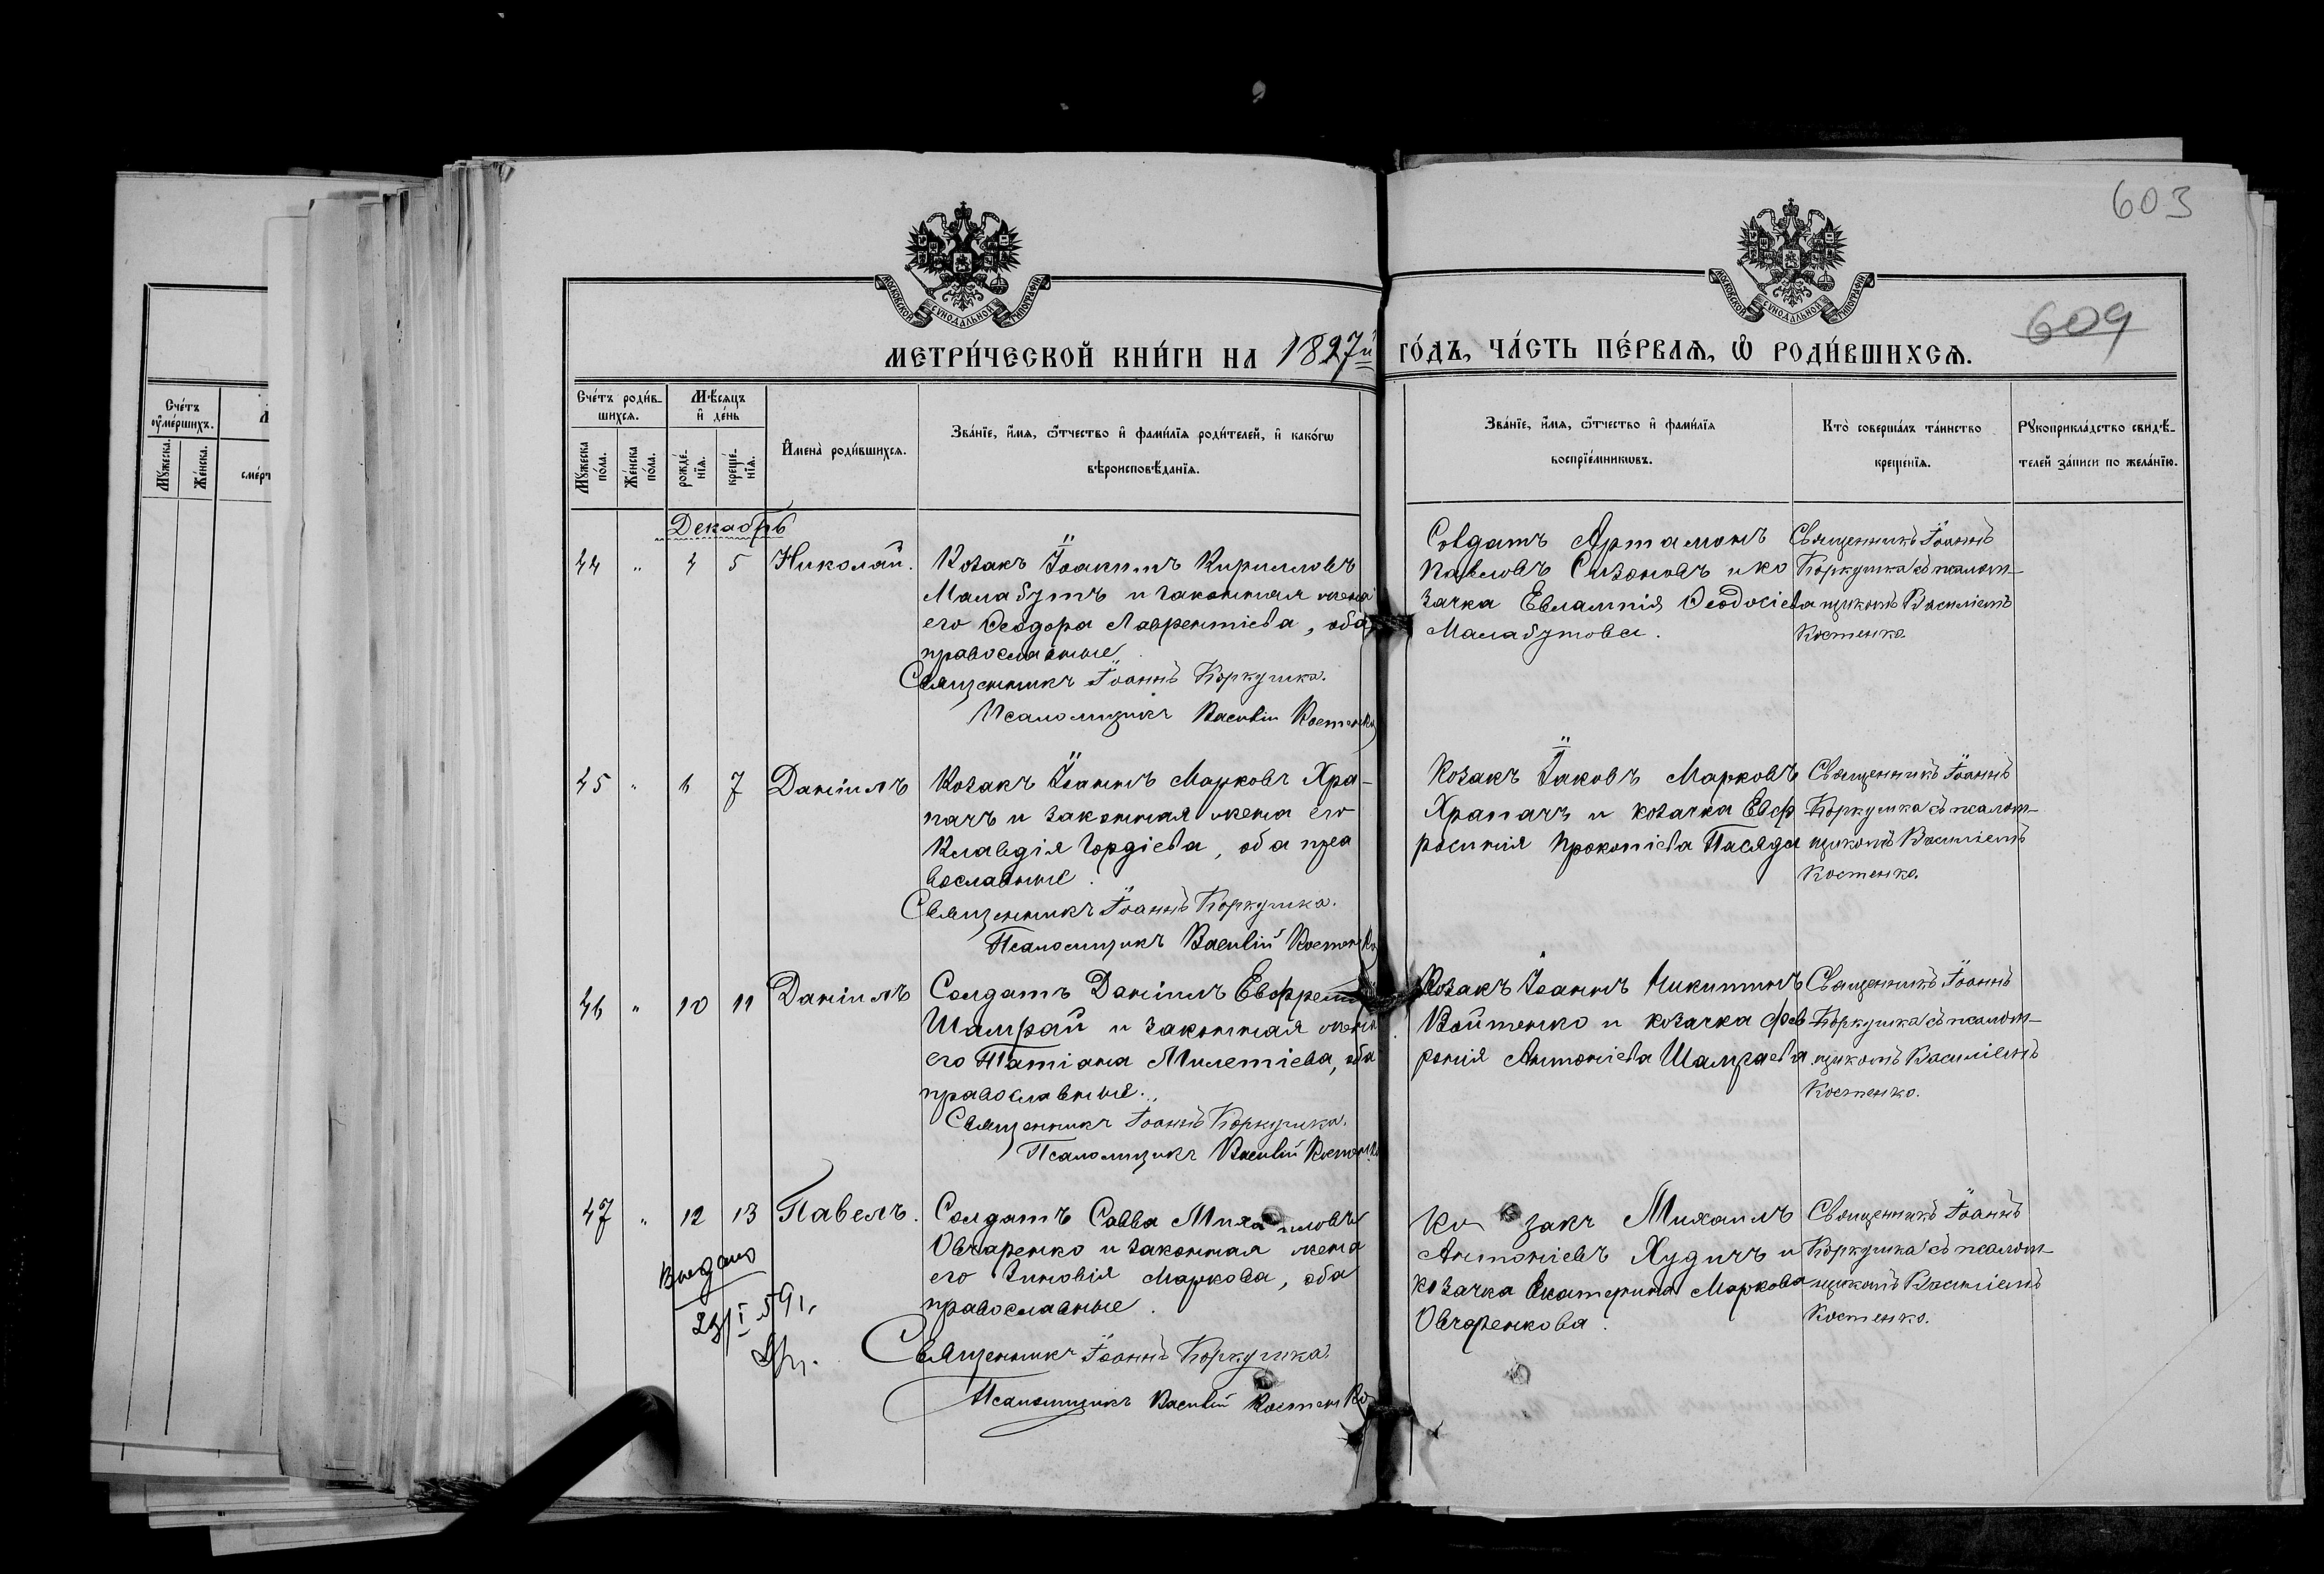 603
609
МОСКОВСКОЙ СУНОДАЛЬНОЙ ТИПОГРАФІИ
МОСКОВСКОЙ СУНОДАЛЬНОЙ ТИПОГРАФІИ
МЕТРИ́ЧЕСКОЙ КНИ́ГИ НА 1897й ГО́ДЪ, ЧА́СТЬ ПЕ́РВАѦ, Ѡ҆ РОДИ́ВШИХСѦ.
Сче́тъ ᲂу҆ме́ршихъ.
Мꙋ́жеска.
Же́нска.
Сче́тъ роди́в-
шихсѧ.
Мꙋ́жеска по́ла.
Же́нска по́ла.
Мѣ́сѧцъ
и҆ де́нь
рожде́-нїѧ.
креще́-нїѧ.
И҆мена̀ роди́вшихсѧ.
Зва́нїе, и҆́мѧ, ѻ҆́тчество и҆ фами́лїѧ роди́телей, и҆ како́гѡ
вѣроисповѣ́данїѧ.
Зва́нїе, и҆́мѧ, ѻ҆́тчество и҆ фами́лїѧ
воспрїе́мникѡвъ.
Кто̀ соверша́лъ та́инство
креще́нїѧ.
Рꙋкоприкла́дство свидѣ́-
телей за́писи по жела́нїю.
Декабрь
44 " 4 5 Николай.
Козакъ Іоакимъ Кирилловъ
Малабутъ и законная жена
его Ѳеодора Лаврентіева, оба
православные
Священникъ Іоаннъ Коркушка.
Псаломщикъ Василій Костенко
Солдатъ Артамонъ
Павловъ Сизоновъ и ко
зачка Евлампія Ѳеодосіева
Малабутова.
Священникъ Іоаннъ
Коркушка съ псалом-
щикомъ Василіемъ
Костенко.
45 " 6 7 Даніилъ
Козакъ Іоаннъ Марковъ Хра-
пачъ и законная жена его
Клавдія Гордіева, оба пра
вославные.
Священникъ Іоаннъ Коркушка.
Псаломщикъ Василій Костенко
Козакъ Іаковъ Марковъ
Храпачъ и козачка Евф
росинія Прокопіева
Священникъ Іоаннъ
Коркушка съ псалом-
щикомъ Василіемъ
Костенко.
46 " 10 11 Даніилъ
Солдатъ Даніилъ
Шамрай и законная жена
его Татіана Милетіева, оба
православные.
Священникъ Іоаннъ Коркушка.
Псаломщикъ Василій Костенко
Козакъ Іоаннъ Никитинъ
Войтенко и козачка Фев
ронія Антоніева Шамраева
Священникъ Іоаннъ
Коркушка съ псалом-
щикомъ Василіемъ
Костенко.
47 " 12 13 Павелъ.
Солдатъ Савва Михаиловъ
Овчаренко и законная жена
его Зиновія Маркова, оба
православные.
Священникъ Іоаннъ Коркушка.
Псаломщикъ Василій Костенко
Козакъ Михаилъ
Антоніевъ Худичъ и
козачка Екатерина Маркова
Овчаренкова.
Священникъ Іоаннъ
Коркушка съ псалом-
щикомъ Василіемъ
Костенко.
Выдано
23/I 59г.